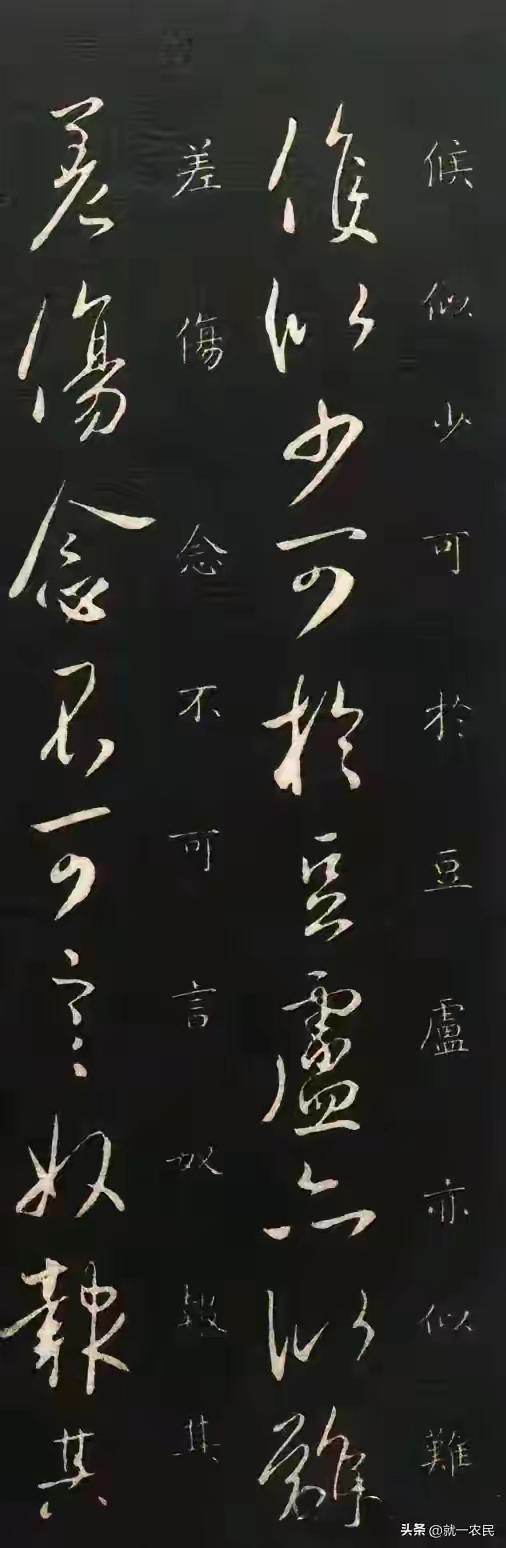 候似少可於豆盧亦似難
候似少可於豆盧亦似難
差傷念不可言奴報其
差傷念不可言奴報其
头条 @就一农民